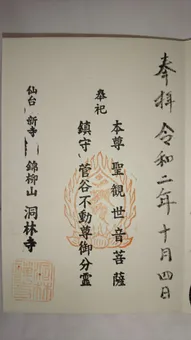 奉拝 令和二年十月四日
本尊 聖観世音菩薩
奉祀
鎮守 菅谷不動尊御分霊
仙台 新寺 錦柳山 洞林寺